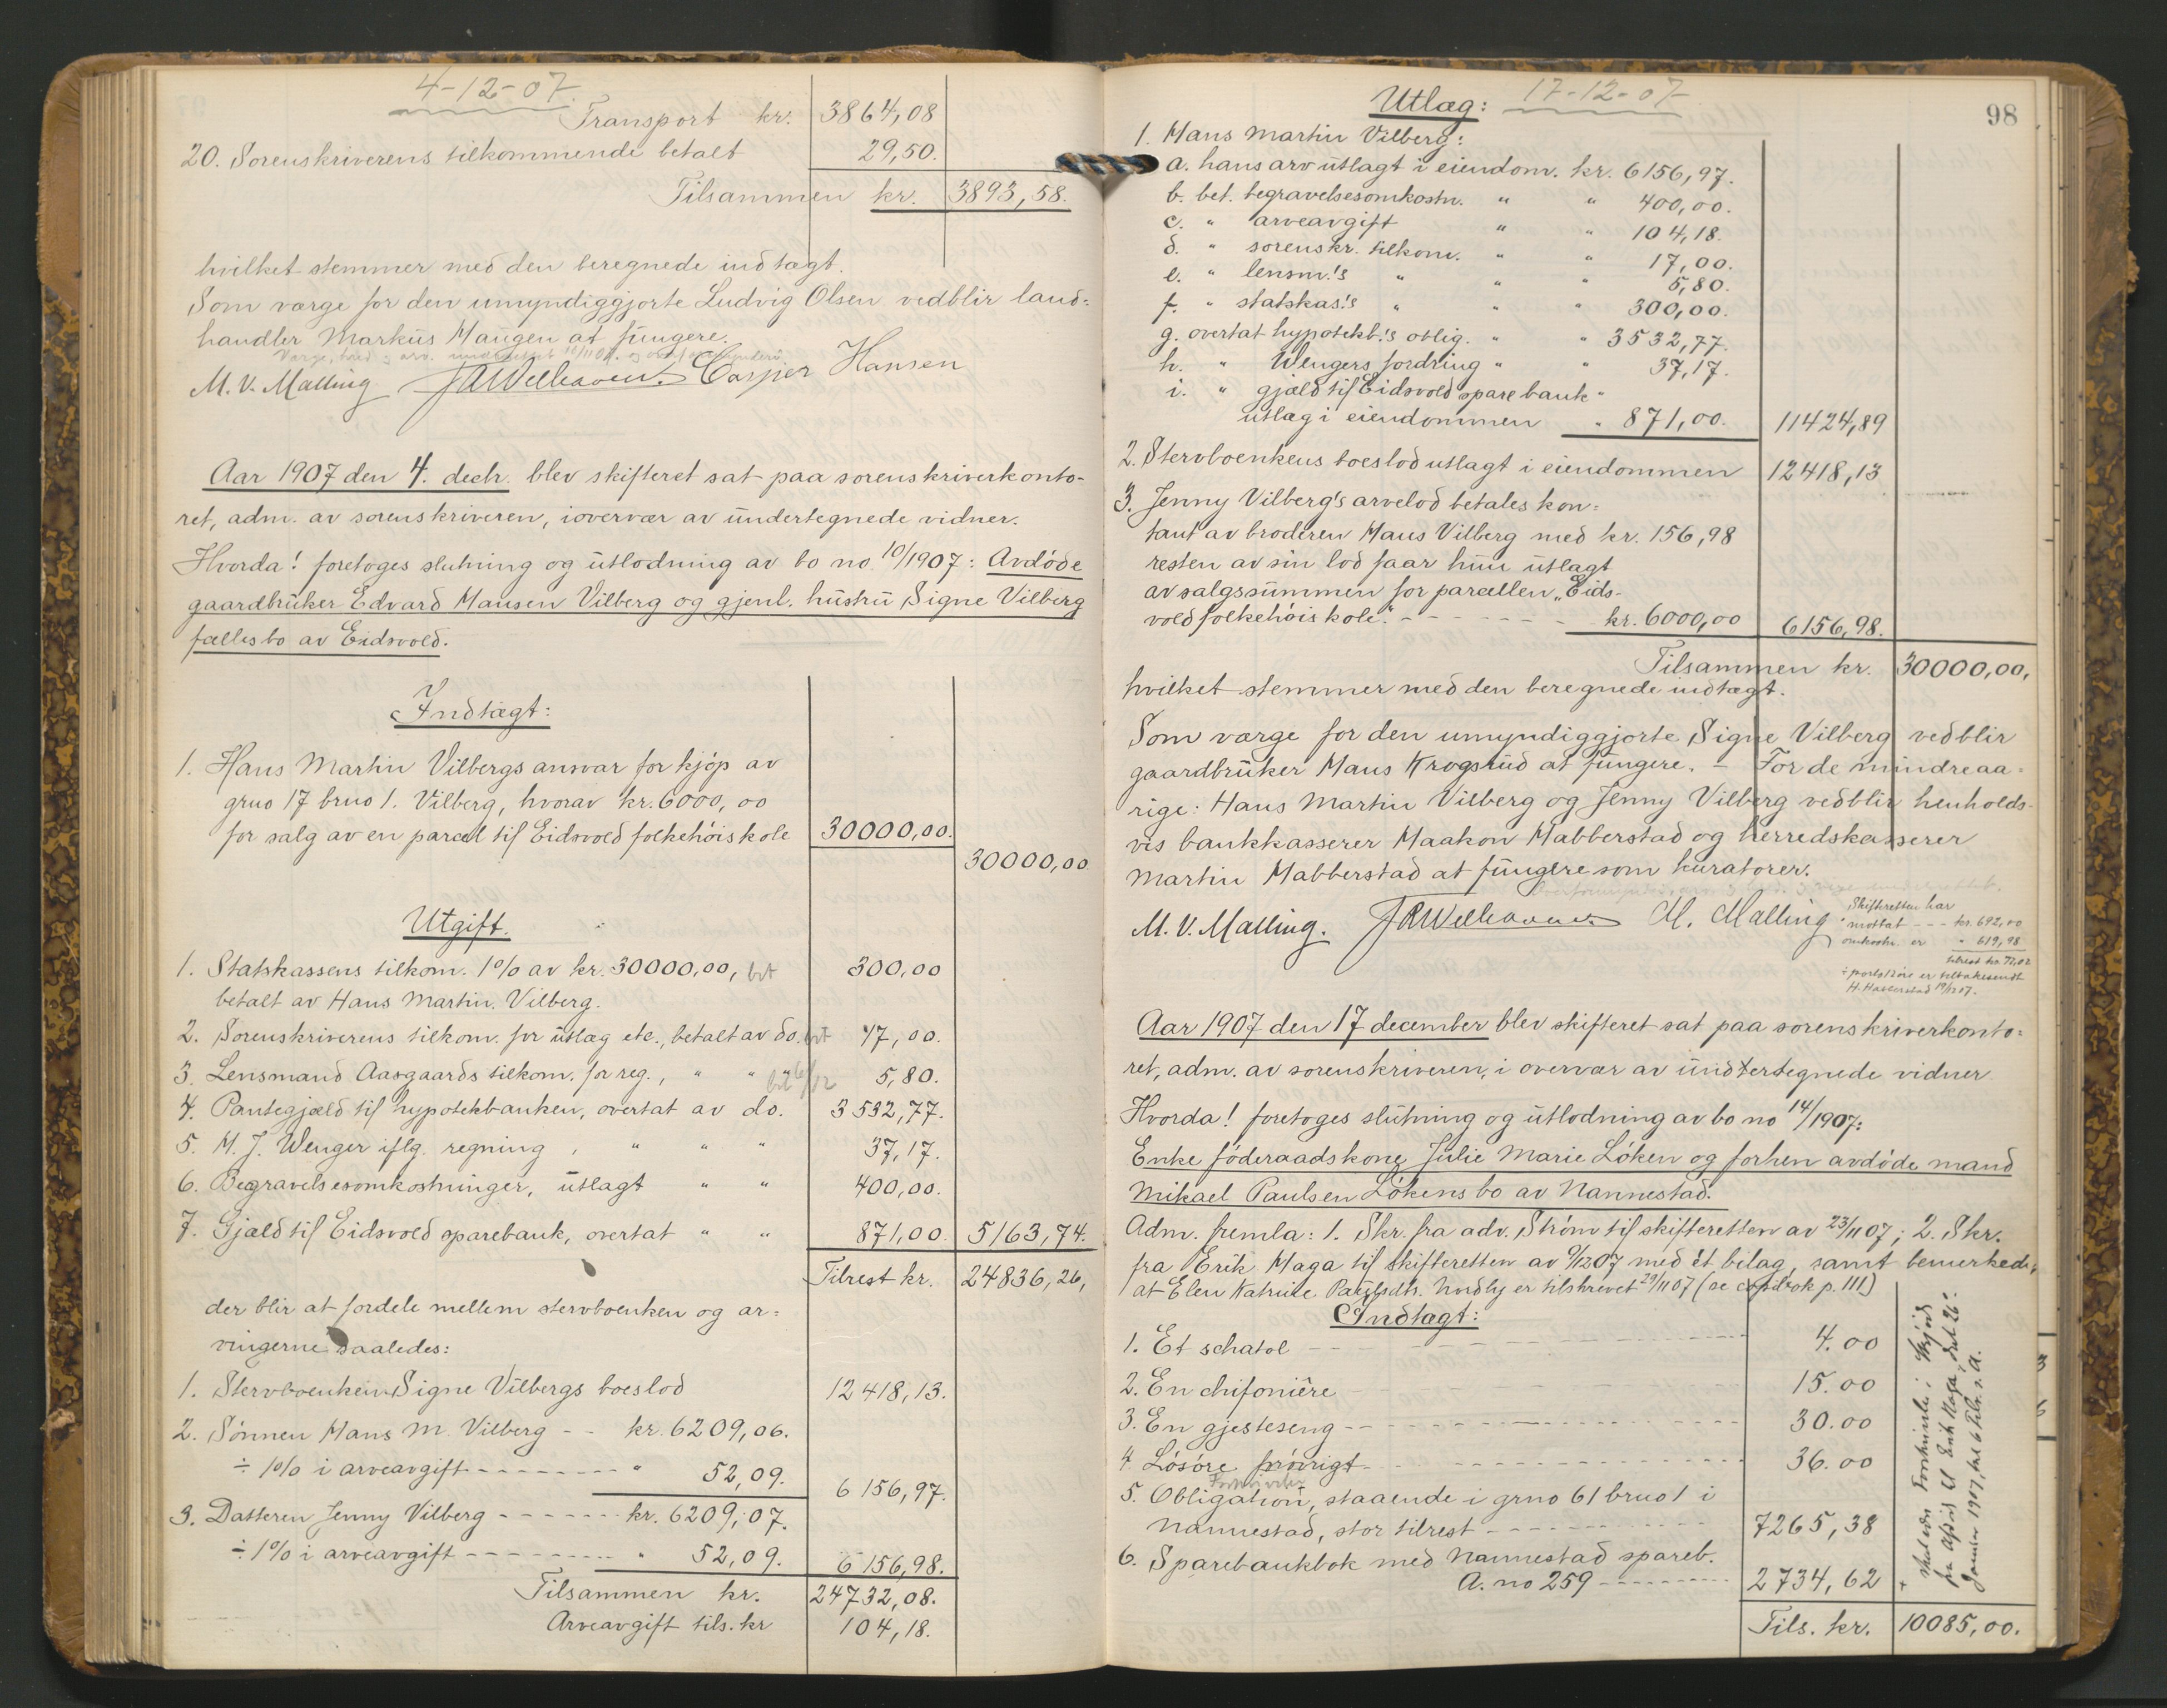 4-12-07.
Transport kr. 3864,08
20. Sorenskriverens tilkommende betalt 29,50.
Tilsammen kr. 3893,58.
hvilket stemmer med den beregnede indtægt.
Som værge for den umyndiggjorte Ludvig Olsen vedblir land=
handler Markus Haugen at fungere.
M. V. Malling JAWelhaven. Casper Hansen
Aar 1907 den 4. decbr. blev skifteret sat paa sorenskriverkonto-
ret, adm. av sorenskriveren, iovervær av undertegnede vidner.
Hvorda! foretoges slutning og utlodning av bo no. 10/1907: Avdöde
gaardbruker Edvard Hansen Vilberg og gjenl. hustru Signe Vilberg
fællesbo av Eidsvold.
Indtægt:
1. Hans Martin Vilbergs ansvar for kjöp av
grno 17 brno 1. Vilberg, hvorav kr. 6000,00
for salg av en parcel til Eidsvold folkehöiskole 30000,00.
30000,00
Utgift.
1. Statskassens tilkom. 1% av kr. 30000,00, bet 300,00
betalt av Hans Martin Vilberg.
2. Sorenskriverens tilkom. for utlæg etc., betalt av do. bet 17,00.
3. Lensmand Aasgaards tilkom. for reg., " " " bet 6/12 5,80.
4. Pantegjæld til hypotekbanken, overtat av do. 3532,77.
5. M. J. Wenger iflg. regning, " " " 37,17.
6. Begravelsesomkostninger, utlagt " " 400,00.
7. Gjæld til Eidsvold sparebank, overtat " " 871,00. 5163,74.
Tilrest kr. 24836,26,
der blir at fordele mellem stervboenken og ar=
vingerne saaledes:
1. Stervboenken Signe Vilbergs boeslod 12418,13.
2. Sönnen Hans M. Vilberg - - kr. 6209,06.
÷ 1% i arveavgift - - - - - " 52,09. 6156,97.
3. Datteren Jenny Vilberg - - - - kr. 6209,07.
÷ 1% i arveavgift - - - - - " 52,09. 6156,98.
Tilsammen kr. 24732,08.
Arveavgift tils. kr 104,18.
98
Utlæg: 17-12-07
1. Hans Martin Vilberg:
a. hans arv utlagt i eiendom. kr. 6156,97.
b. bet. begravelsesomkostn. " " 400,00.
c. " arveavgift " " 104,18.
d. " sorenskr. tilkom. " " 17,00.
e. " lensm.'s " " " 5,80.
f. " statskas.'s " " " 300,00.
g. overtat hypotekb.'s oblig. " " 3532,77.
h. " Wengers fordring " " 37,17.
i. " gjæld til Eidsvold sparebank "
utlæg i eiendommen " 871,00. 11424,89
2. Stervboenkens boeslod utlagt i eiendommen 12418,13
3. Jenny Vilberg's arvelod betales kon=
tant av broderen Hans Vilberg med kr. 156,98
resten av sin lod faar hun utlagt
av salgssummen for parcellen „Eids-
vold folkehöiskole." - - - - - - kr. 6000,00 6156,98.
Tilsammen kr. 30000,00,
hvilket stemmer med den beregnede indtægt.
Som værge for den umyndiggjorte Signe Vilberg vedblir
gaardbruker Hans Krogsrud at fungere. - For de mindreaa=
rige: Hans Martin Vilberg og Jenny Vilberg vedblir henholds-
vis bankkasserer Haakon Habberstad og herredskasserer
Martin Habberstad at fungere som kuratorer.
M. V. Malling. JAWelhaven. M. Malling
Skifteretten har
mottat - - - kr. 692,00
omkostn. er " 619,98
tilrest kr. 72,02
÷ porto 12 öre er tilbakesendt
H. Habberstad 19/12 07.
Aar 1907 den 17 december blev skifteret sat paa sorenskriverkonto=
ret, adm. av sorenskriveren, i overvær av undtertegnede vidner
Hvorda! foretoges slutning og utlodning av bo no 14/1907:
Enke föderaadskone Julie Marie Löken og forhen avdöde mand
Mikael Paulsen Lökens bo av Nannestad.
Adm. fremla: 1. Skr. fra adv. Ström til skifteretten av 23/11 07; 2. Skr.
fra Erik Haga til skifteretten av 9/12 07 med ét bilag, samt bemerkede,
at Elen Katrine Paulsdt. Nordby er tilskrevet 29/11 07 (se copibok p. 111)
Indtægt:
1. Et schatol - - - - - - 4.00
2. En chifoniêre - - - - - 15.00
3. En gjesteseng - - - - - 30.00
4. Lösöre forövrigt - - - - 36.00
5. Obligation, staaende i grno 61 brno 1 i
Nannestad, stor tilrest - - - - 7265,38
6. Sparebankbok med Nannestad spareb.
A. no 259 - - - - - 2734,62
Tils. kr. 10085,00.